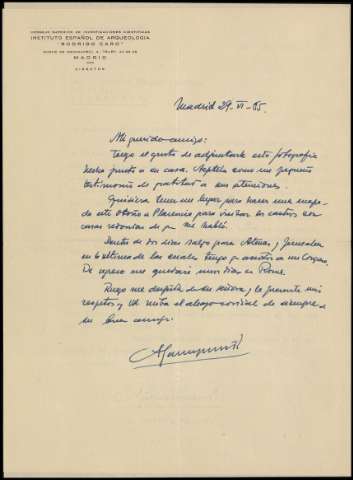 CONSEJO SUPERIOR DE INVESTIGACIONES CIENTIFICAS
INSTITUTO ESPAÑOL DE ARQUEOLOGIA
"RODRIGO CARO"
MADRID
DIRECTOR
Madrid 29. VI - 65.
Mi querido amigo:
Tengo el gusto de adjuntarle esta fotografía
hecha junto a su casa. Acéptela como un pequeño
testimonio de gratitud a sus atenciones.
Quisiera tener un lugar para hacer una
de este otoño a Plasencia para visitar los castros con
casas redondas de que me habló.
Dentro de dos días salgo para Atenas y Jerusalen
en la última de las cuales tengo q asistir a un Congreso.
De regreso me quedaré unos días en Roma.
Ruego me despida de su señora, le presente mis
respetos y Ud reciba el abrazo cordial de siempre de
su buen amigo.